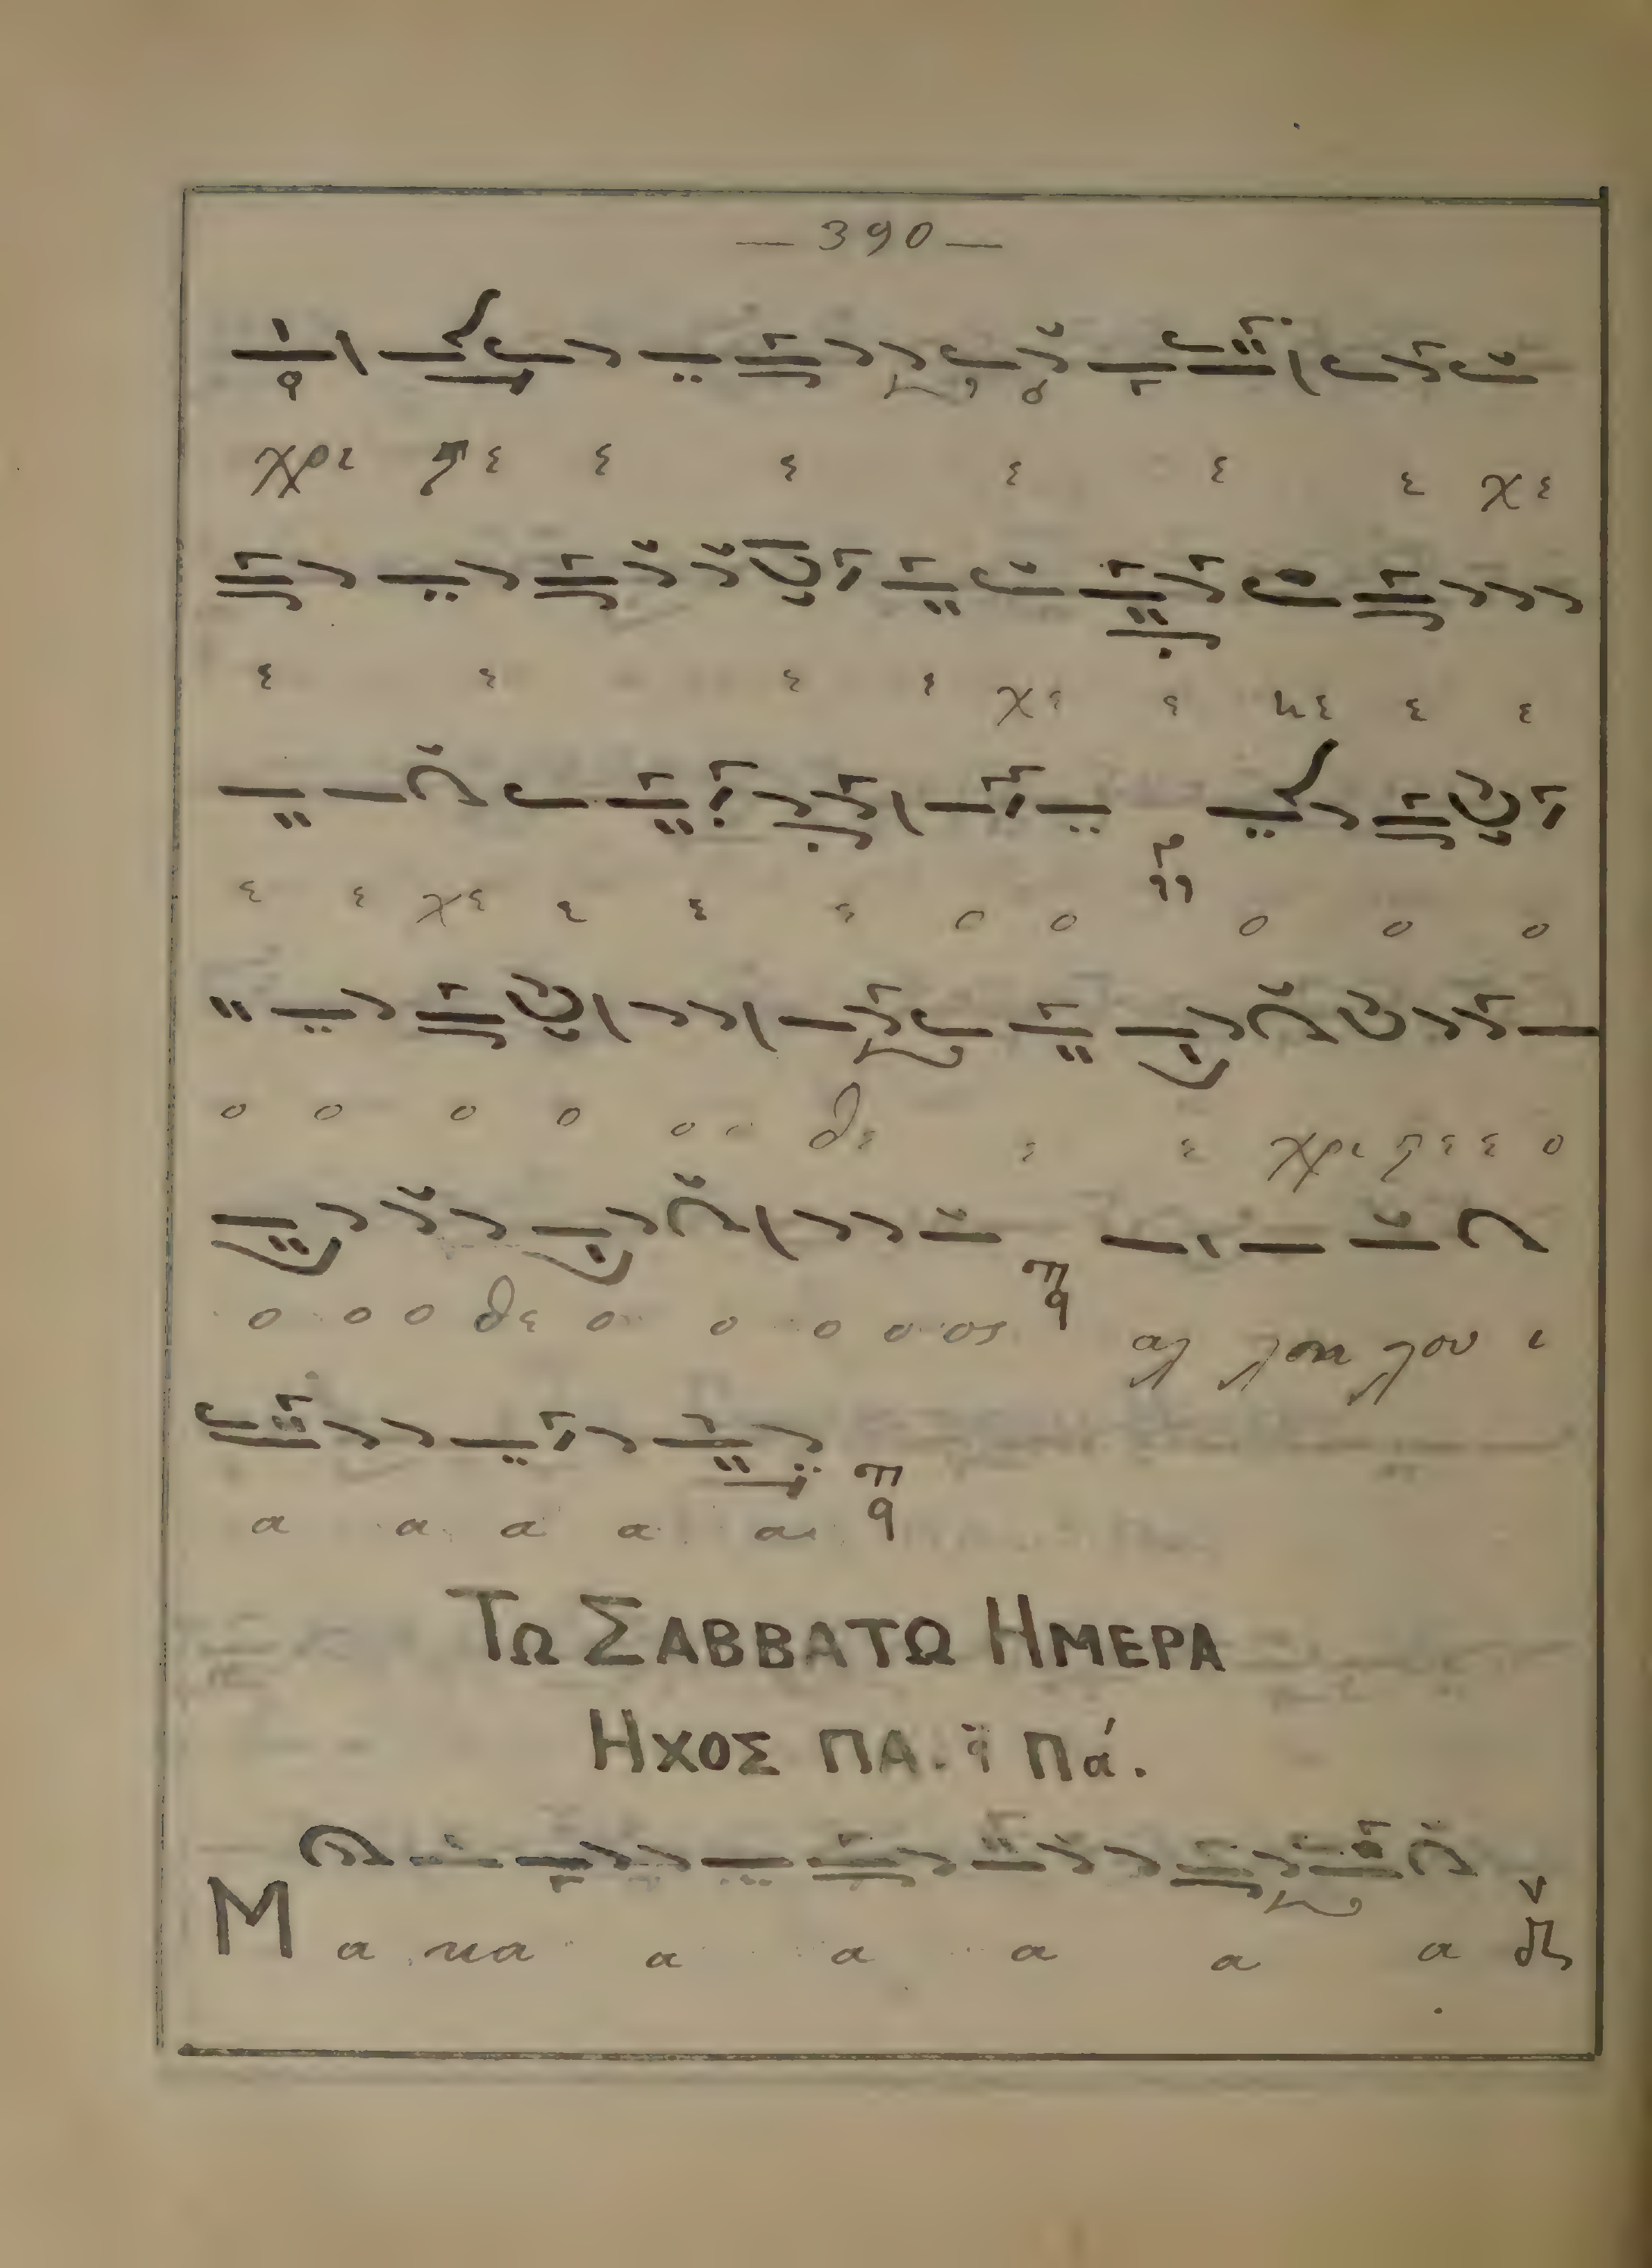 — 390 —
χρι ϛε ε ε ε ε ε χε
ε ε ε ε χε ε νε ε ε
ε ε χε ε ε ε ο ο ο ο ο
ο ο ο ο ο ο θε ε ε χρι ϛε ε ο
ο ο ο θε ο ο ο ο ος αλ λη λου ι
α α α α α
ΤΩ ΣΑΒΒΑΤΩ ΗΜΕΡΑ
ΗΧΟΣ ΠΑ. Πά.
Μα κα α α α α α